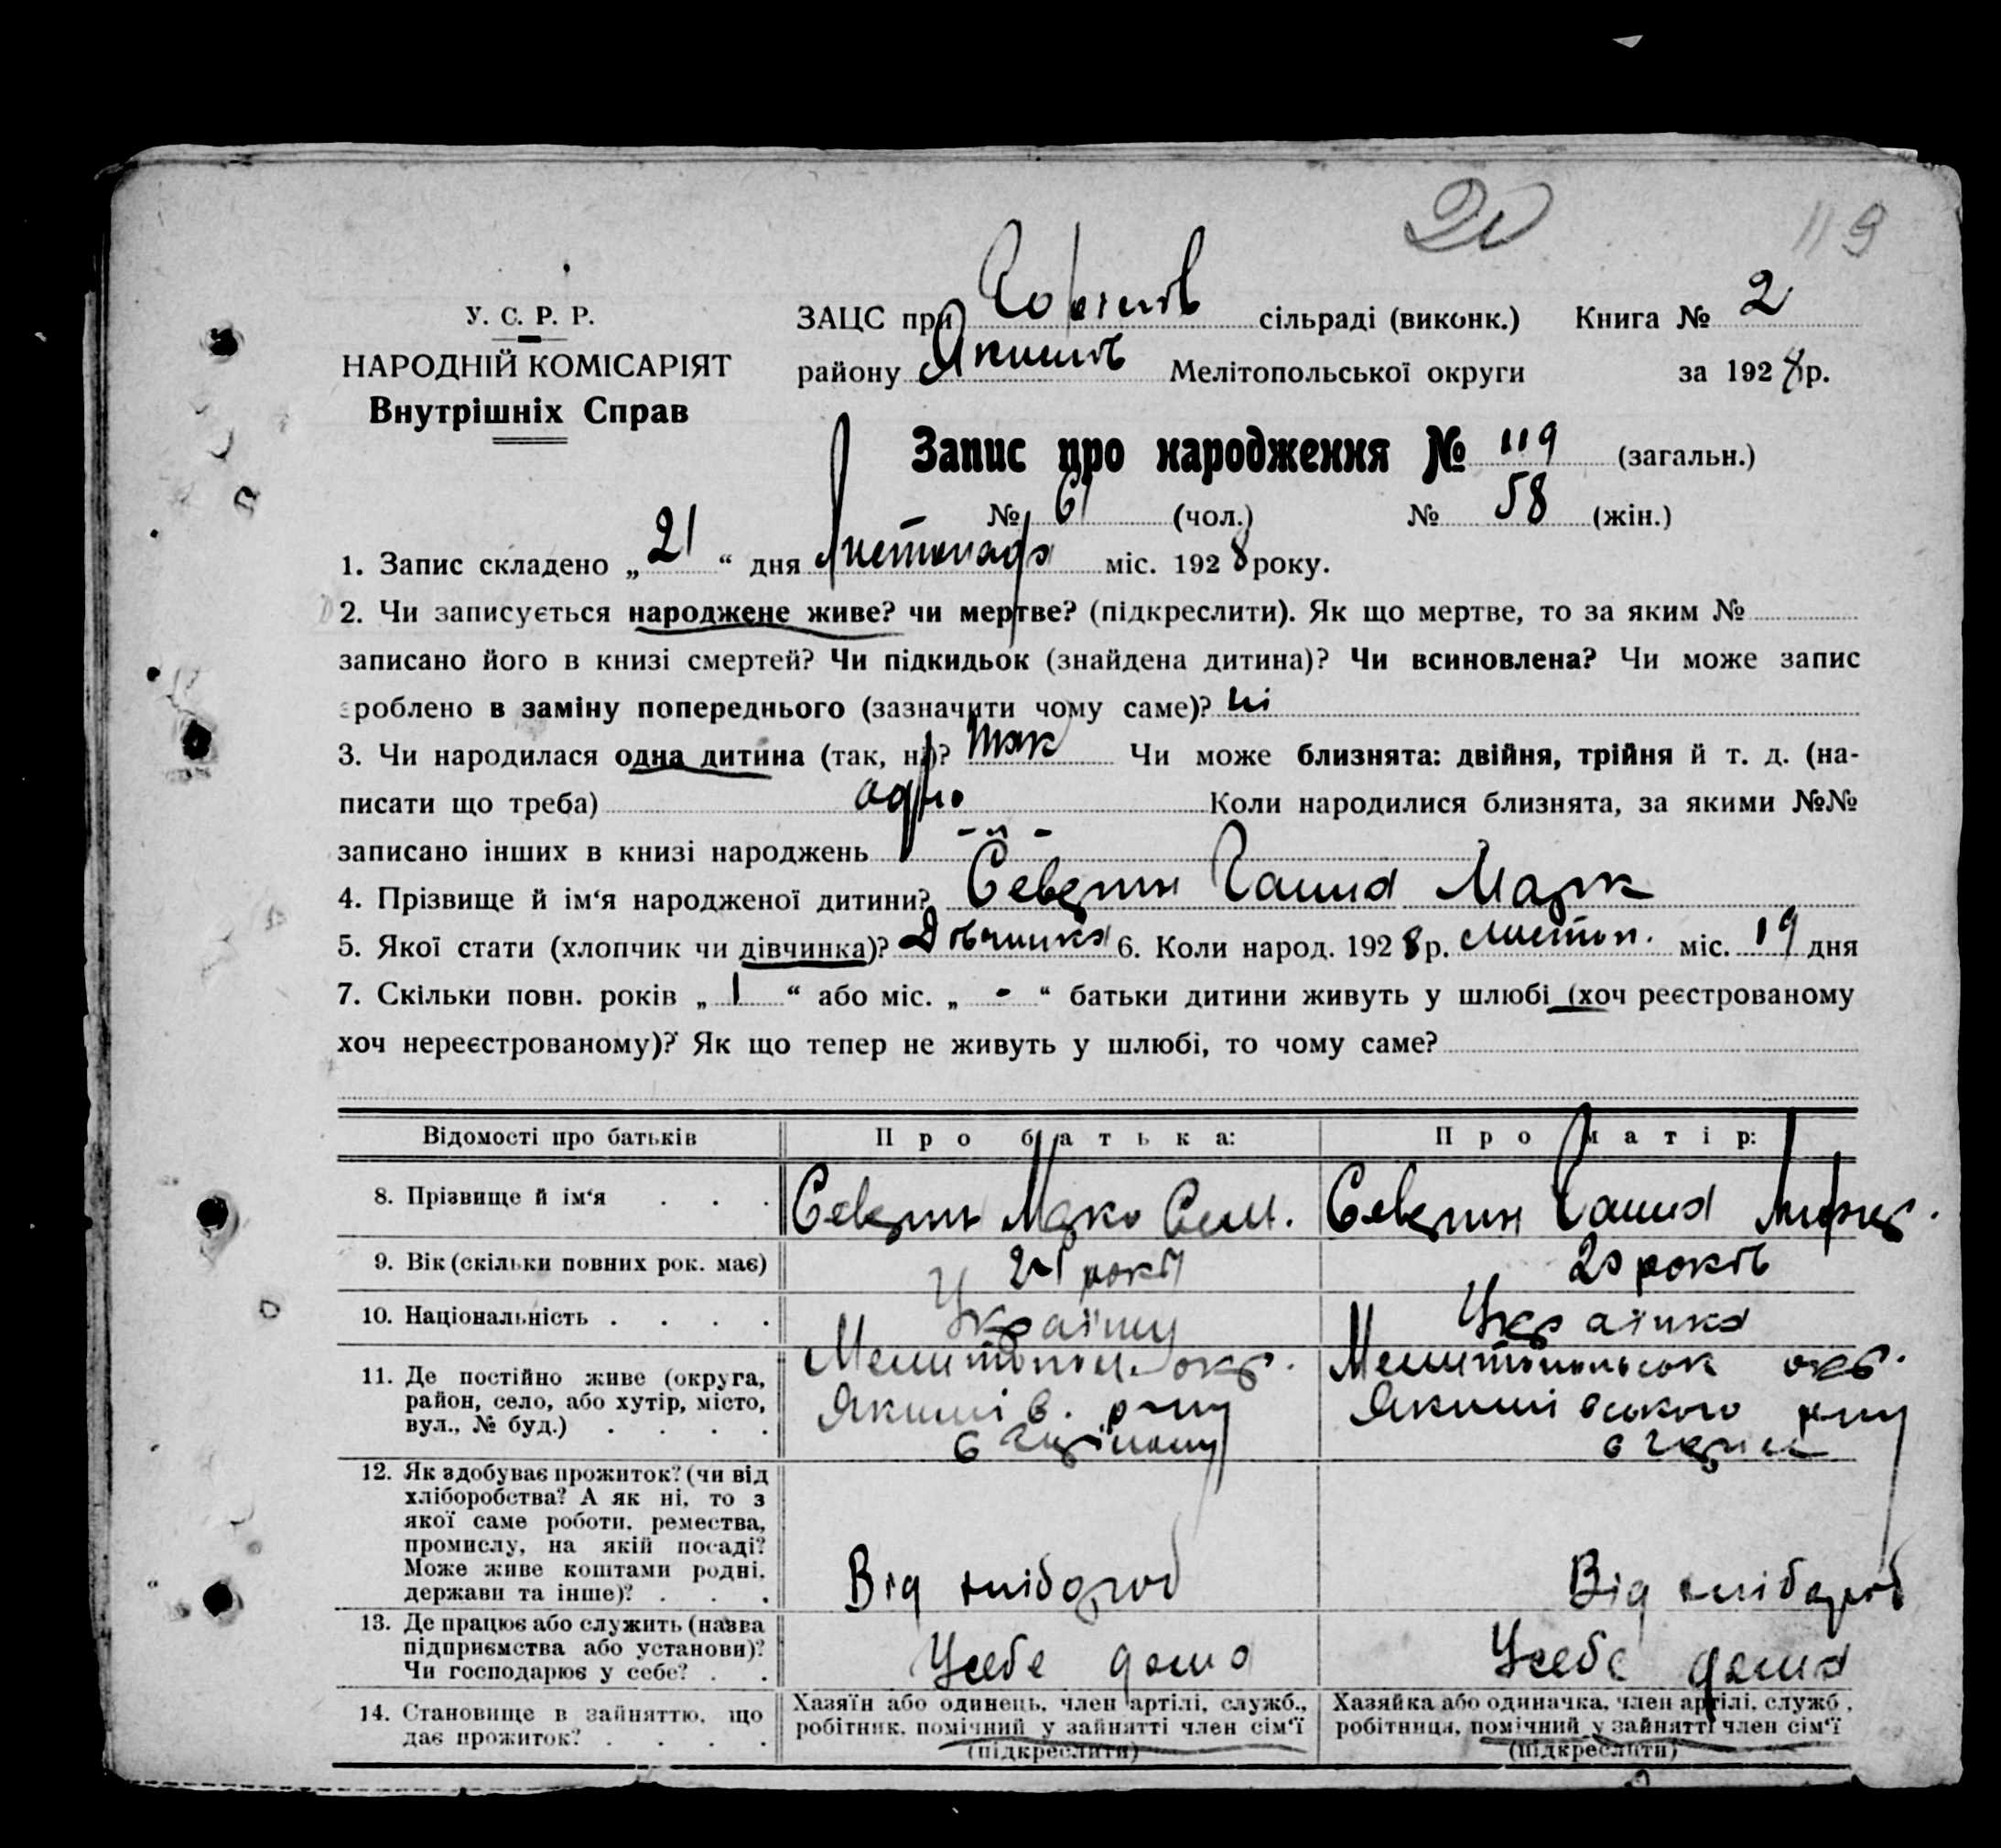 20 119
У. С. Р. Р.
НАРОДНІЙ КОМІСАРІЯТ
Внутрішніх Справ
ЗАЦС при сільраді (виконк.) Книга № 2
району Якимів Мелітопольської округи за 1928 р.
Запис про народження № 119 (загальн.)
№ 61 (чол.) № 58 (жін.)
1. Запис складено „21“ дня Листопада міс. 1928 року.
2. Чи записується народжене живе? чи мертве? (підкреслити). Як що мертве, то за яким №
записано його в книзі смертей? Чи підкидьок (знайдена дитина)? Чи всиновлена? Чи може запис
зроблено в заміну попереднього (зазначити чому саме)? ні
3. Чи народилася одна дитина (так, ні)? так Чи може близнята: двійня, трійня й т. д. (на-
писати що треба) одно Коли народилися близнята, за якими №№
записано інших в книзі народжень - „ -
4. Прізвище й ім‘я народженої дитини? Северин Гашка Марк
5. Якої стати (хлопчик чи дівчинка)? Дівчинка 6. Коли народ. 1928 р. листоп. міс. 19 дня
7. Скільки повн. років „ 1 “ або міс. „ - “ батьки дитини живуть у шлюбі (хоч реєстрованому
хоч нереєстрованому)? Як що тепер не живуть у шлюбі, то чому саме?
Відомості про батьків Про батька: Про матір:
8. Прізвище й ім‘я . . . Северин Марко Сем. Северин
9. Вік (скільки повних рок. має) 21 років 20 років
10. Національність . . . . Українц Українка
11. Де постійно живе (округа,
район, село, або хутір, місто,
вул., № буд.) . . . .
Мелитопол. окр.
Якимів. рну
Мелитопольськ окр.
Якимівського рну
12. Як здобуває прожиток? (чи від
хліборобства? А як ні, то з
якої саме роботи, ремества,
промислу, на якій посаді?
Може живе коштами родні,
держави та інше)? . . .
Від хлібороб Від хлібороб
13. Де працює або служить (назва
підприємства або установи)?
Чи господарює у себе? . .
Усебе дома Усебе дома
14. Становище в зайняттю, що
дає прожиток? . . . .
Хазяїн або одинець, член артілі, служб.,
робітник, помічний у зайнятті член сім‘ї
(підкреслити)
Хазяйка або одиначка, член артілі, служб.,
робітниця, помічний у зайнятті член сім‘ї
(підкреслити)